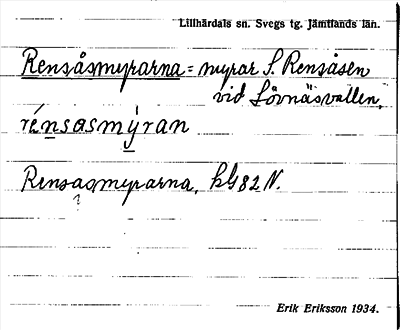 Lillhärdals sn. Svegs tg. Jämtlands län.
Rensåsmyrarna = myrar S. Rensåsen
vid Lövnäsvallen.
rénsasmýran
Rensasmyrarna, bl 82 N.
?
Erik Eriksson 1934.